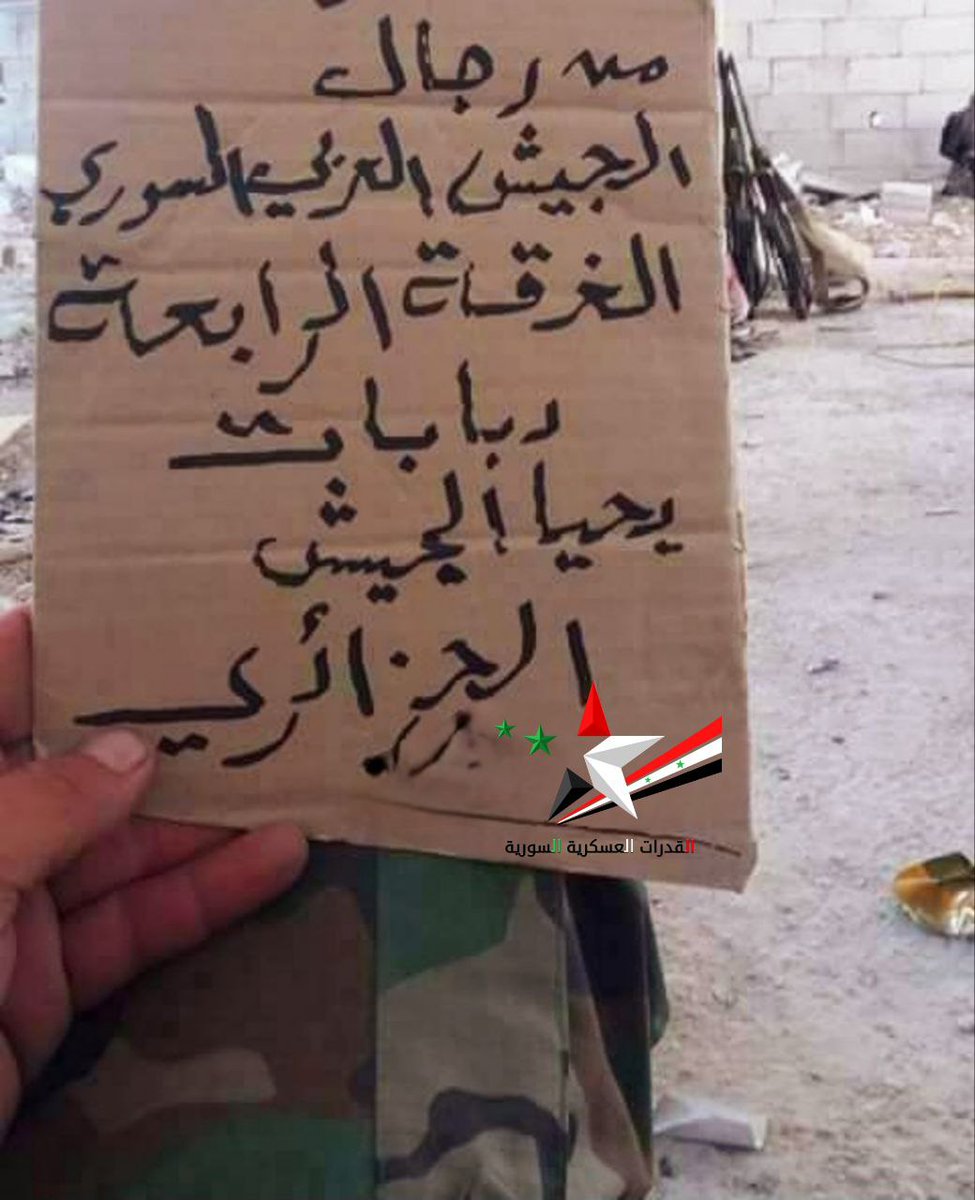 من رجال
الجيش العربي السوري
الغرقة الرابعة
دبابات
يحيا الجيش
الجزائري
القدرات العسكرية السورية